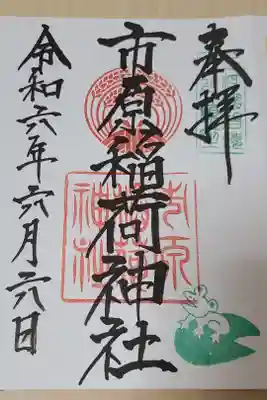 奉拝
市原稲荷神社
令和六年六月六日
市原
稲荷
神社